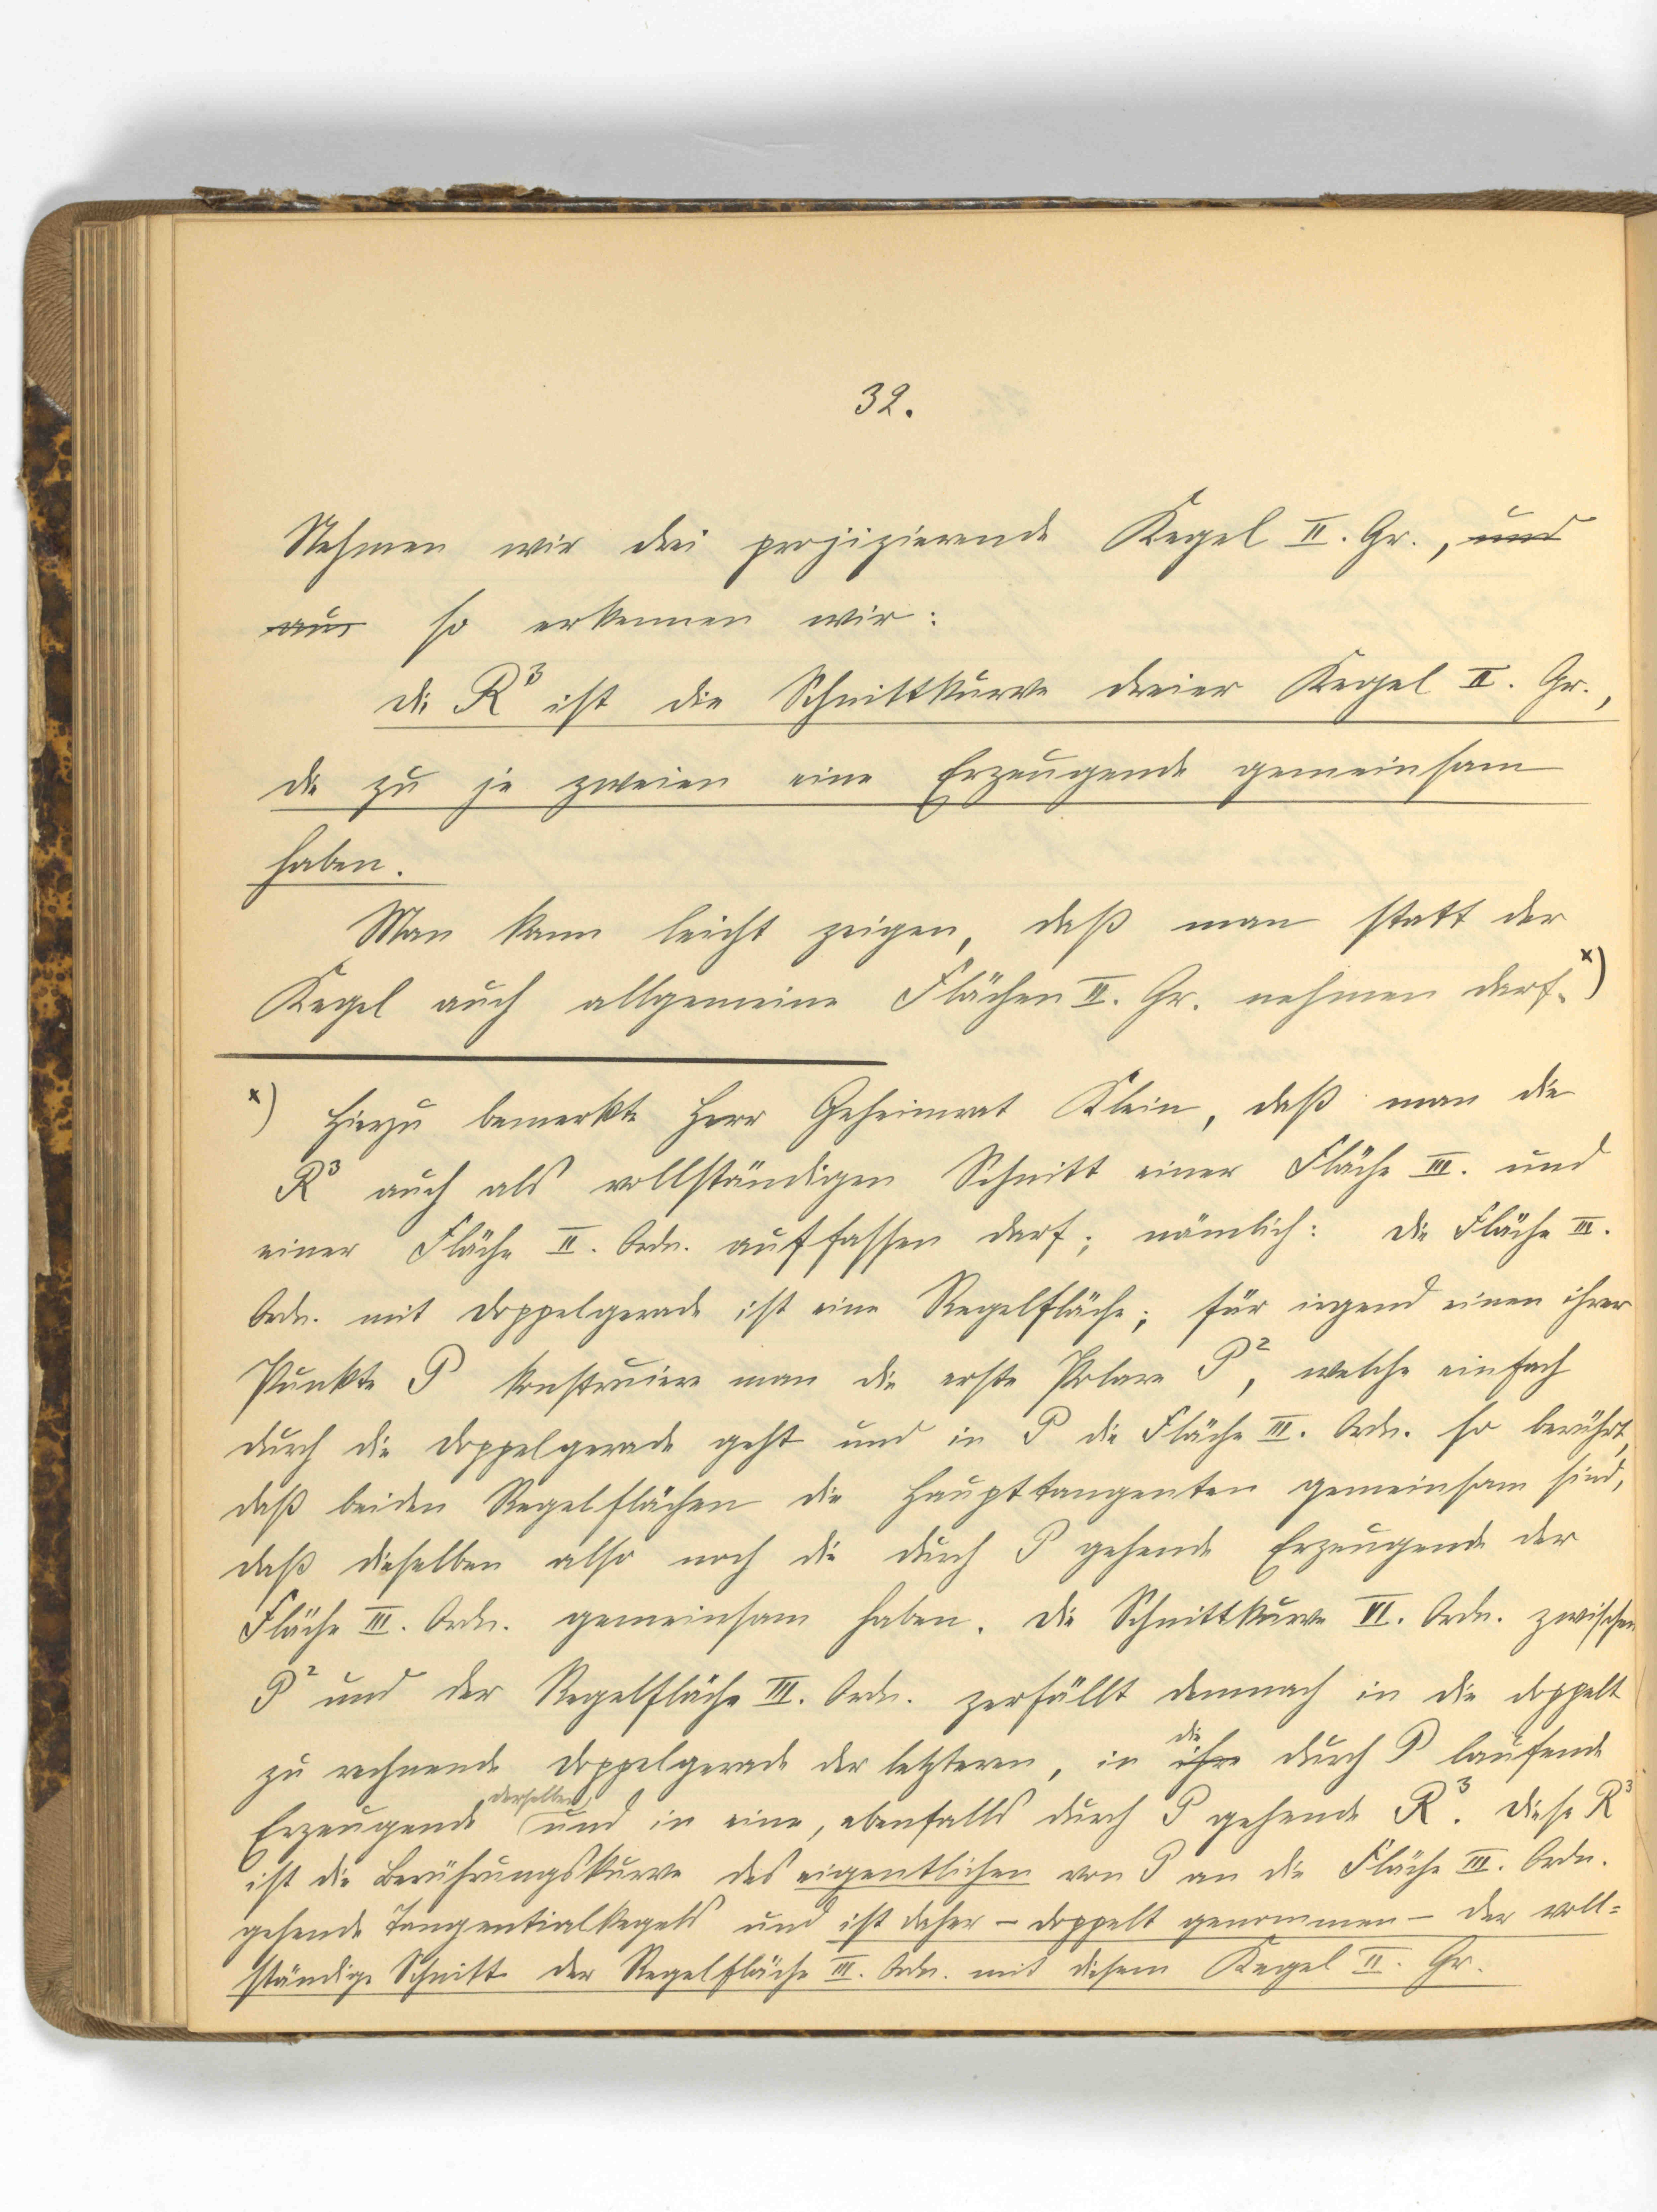 32.
Nehmen wir drei projizierende Kegel II. Gr., und
aus so erkennen wir:
die R³ ist die Schnittkurve dreier Kegel II. Gr.,
die zu je zweien eine Erzeugende gemeinsam
haben.
Man kann leicht zeigen, daß man statt der
Kegel auch allgemeine Flächen II. Gr. nehmen darf.ˣ)
ˣ) Hierzu bemerkte Herr Geheimrat Klein, daß man die
R³ auch als vollständigen Schnitt einer Fläche III. und
einer Fläche II. Ordn. auffassen darf; nämlich: Die Fläche III.
Ordn. mit Doppelgerade ist eine Regelfläche; für irgend einen ihrer
Punkte P konstruiere man die erste Polare P², welche einfach
durch die Doppelgerade geht und in P die Fläche III. Ordn. so berührt,
daß beiden Regelflächen die Haupttangenten gemeinsam sind,
daß dieselben also noch die durch P gehende Erzeugende der
Fläche III. Ordn. gemeinsam haben. Die Schnittkurve VI. Ordn. zwischen
P² und der Regelfläche III. Ordn. zerfällt demnach in die doppelt
zu rechnende Doppelgerade der letzteren, in ihre die durch P laufende
Erzeugende derselben und in eine, ebenfalls durch P gehende R³. Diese R³
ist die Berührungskurve des eigentlichen von P an die Fläche III. Ordn.
gehende Tangentialkegels und ist daher – doppelt genommen – der voll=
ständige Schnitt der Regelfläche III. Ordn. mit diesem Kegel II. Gr.